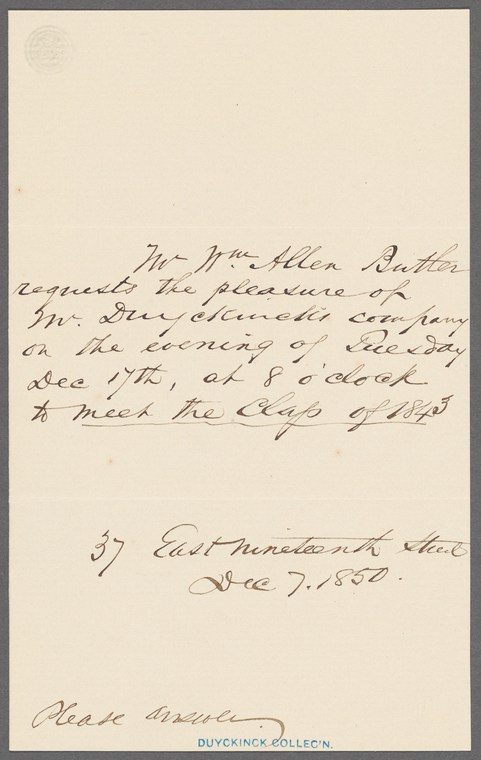 Mr Wm. Allen Butler
requests the pleasure of
Mr. Duyckinck's company
on the evening of Tuesday
Dec 17th, at 8 o'clock
to meet the Class of 1843
37 East nineteenth Street
Dec 7. 1850.
Please answer.
DUYCKINCK COLLEC'N.